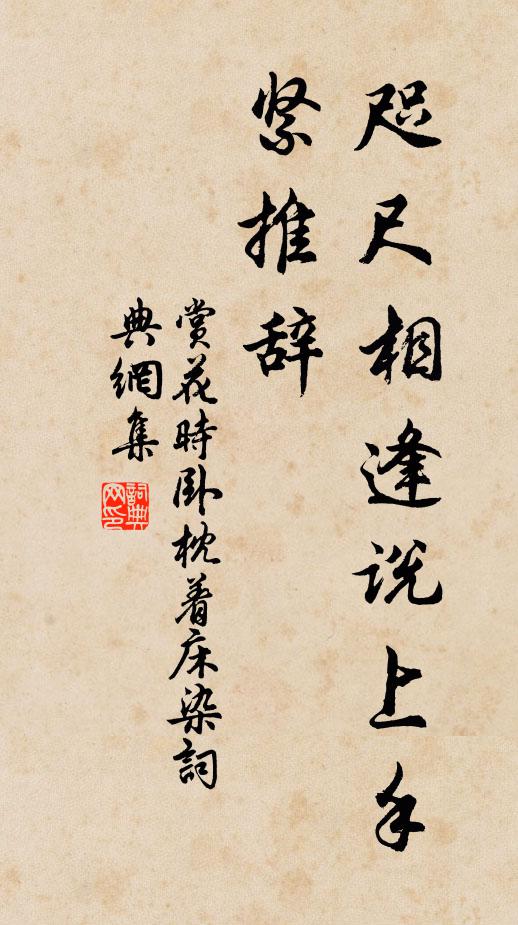 咫尺相逢说上手
紧推辞
赏花时卧枕着床染詞
典網集
詞典网印